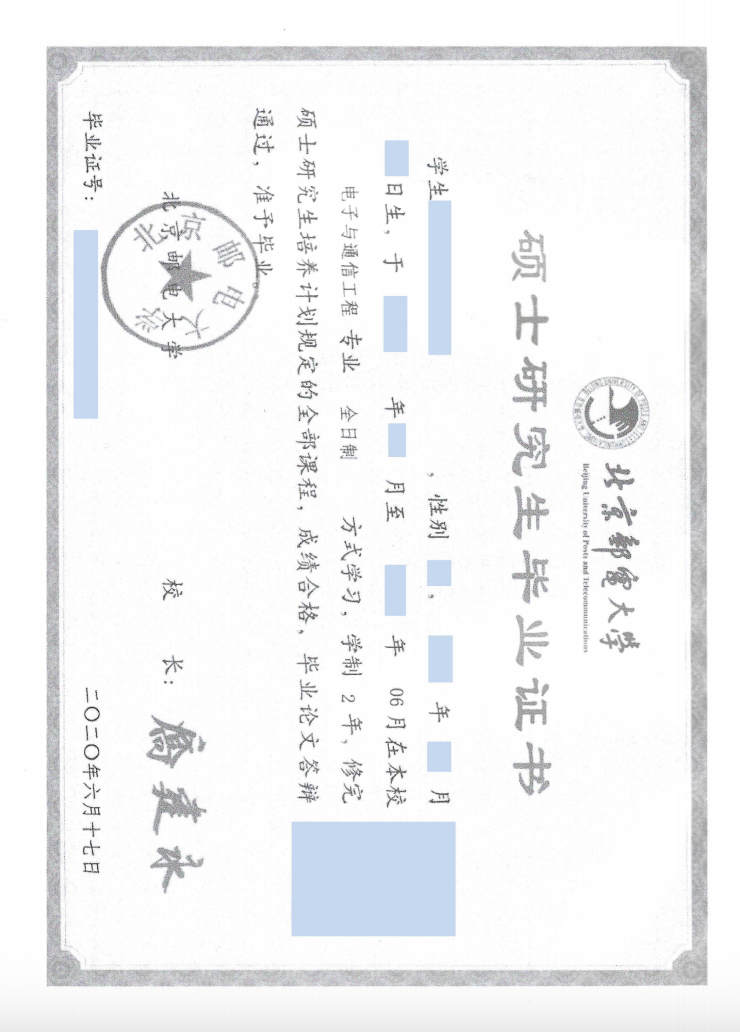 北京邮电大学
Beijing University of Posts and Telecommunications
硕士研究生毕业证书
学生 ，性别 ， 年 月
日生，于 年 月至 年 06月在本校
电子与通信工程 专业 全日制 方式学习，学制 2 年，修完
硕士研究生培养计划规定的全部课程，成绩合格，毕业论文答辩
通过，准予毕业。
北京邮电大学
北京邮电大学
校 长：
毕业证号：
二〇二〇年六月十七日